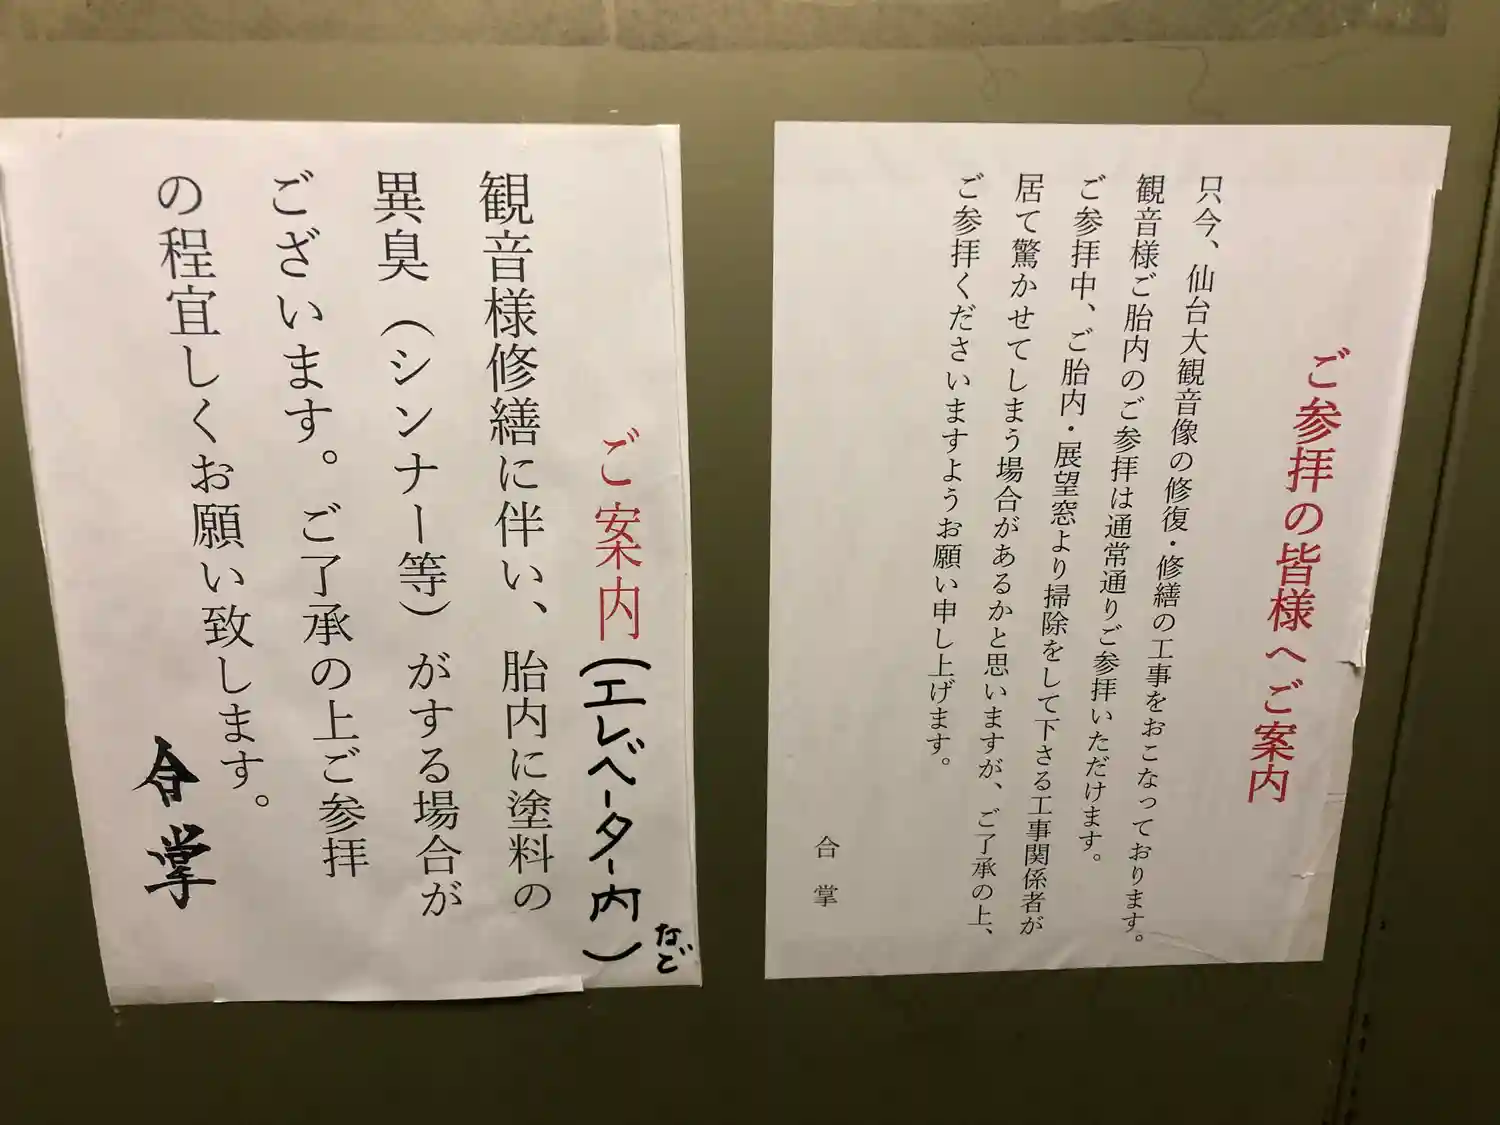 ご参拝の皆様へご案内
只今、仙台大観音像の修復・修繕の工事をおこなっております。
観音様ご胎内のご参拝は通常通りご参拝いただけます。
ご参拝中、ご胎内・展望窓より掃除をして下さる工事関係者が
居て驚かせてしまう場合があるかと思いますが、ご了承の上、
ご参拝くださいますようお願い申し上げます。
合掌
ご案内(エレベーター内)など
観音様修繕に伴い、胎内に塗料の
異臭(シンナー等)がする場合が
ございます。ご了承の上ご参拝
の程宜しくお願い致します。
合掌